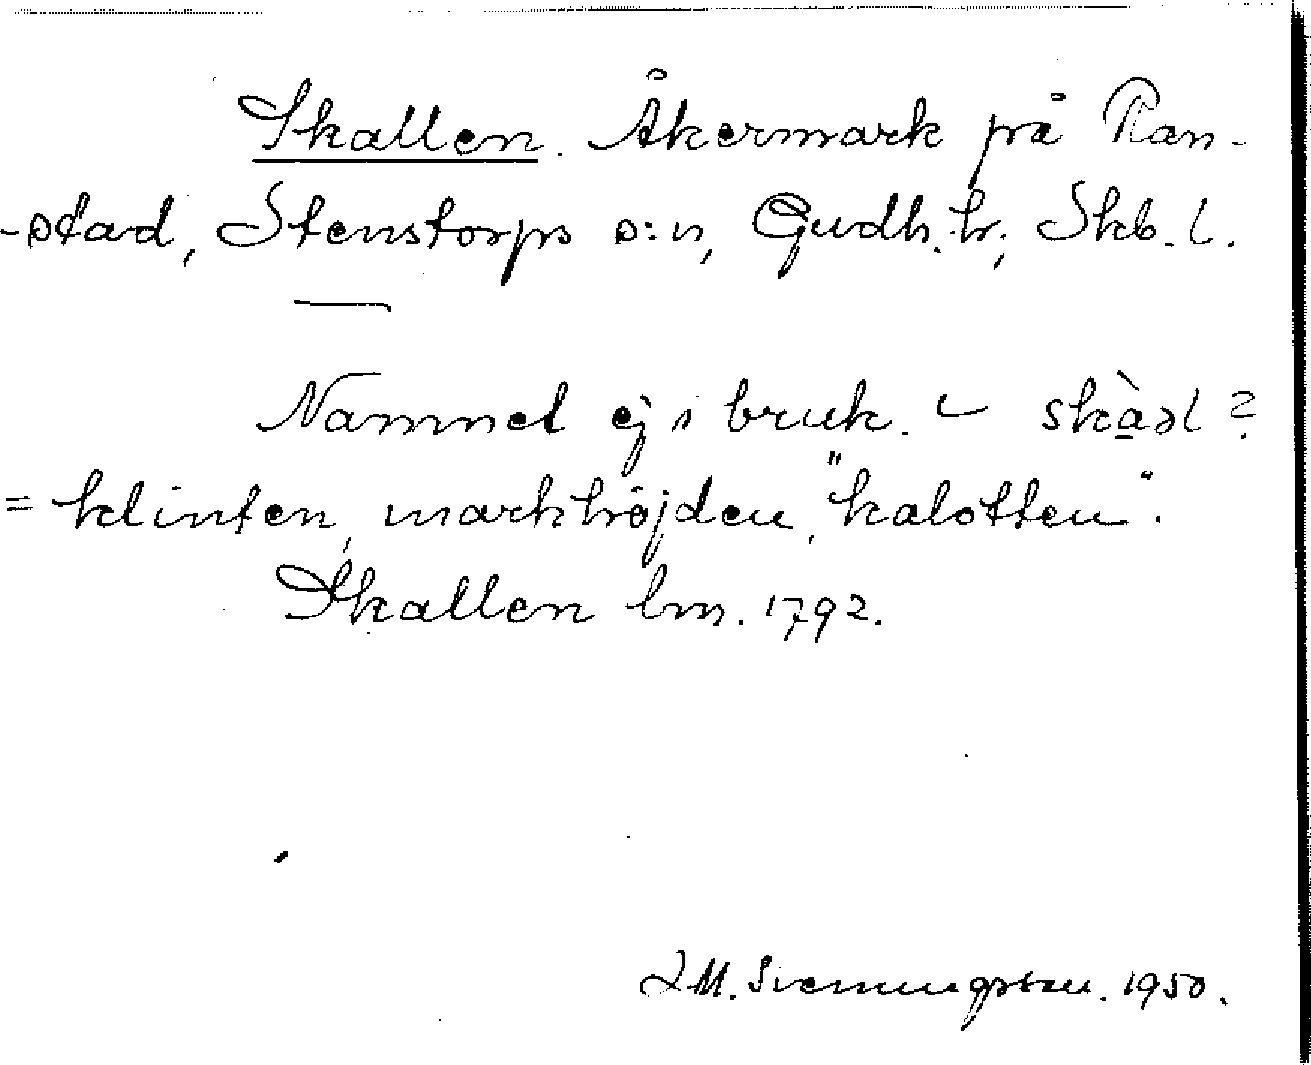 Skallen. Åkermark på Ran-
-stad, Stenstorps s:n, Gudh. hr; Skb. l.
Namnet ej i bruk.
= klinten, markhöjden, "kalotten".
Skallen lm. 1792.
1950.